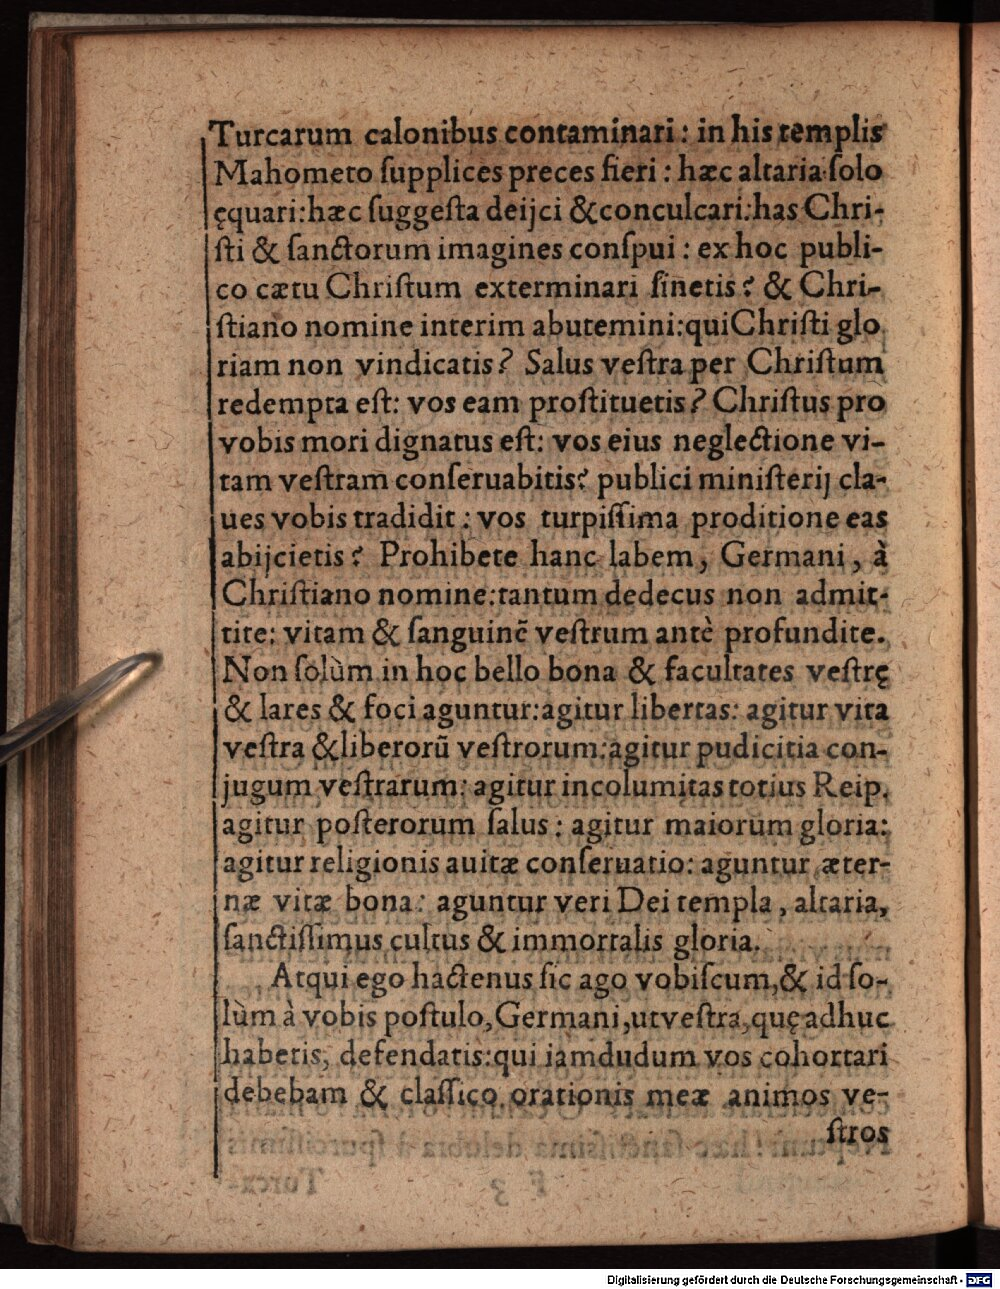 Turcarum calonibus contaminari: in his templis
Mahometo ſupplices preces fieri: hæc altaria ſolo
ęquari: hæc ſuggeſta deijci & conculcari: has Chri-
ſti & ſanctorum imagines conſpui: ex hoc publi-
co cætu Chriſtum exterminari ſinetis? & Chri-
ſtiano nomine interim abutemini: qui Chriſti glo
riam non vindicatis? Salus veſtra per Chriſtum
redempta eſt: vos eam proſtituetis? Chriſtus pro
vobis mori dignatus eſt: vos eius neglectione vi-
tam veſtram conſeruabitis? publici miniſterij cla-
ues vobis tradidit: vos turpiſſima proditione eas
abijcietis? Prohibete hanc labem, Germani, à
Chriſtiano nomine: tantum dedecus non admit-
tite: vitam & ſanguinē veſtrum antè profundite.
Non ſolùm in hoc bello bona & facultates veſtrę
& lares & foci aguntur: agitur libertas: agitur vita
veſtra & liberorū veſtrorum: agitur pudicitia con-
jugum veſtrarum: agitur incolumitas totius Reip.
agitur poſterorum ſalus: agitur maiorum gloria:
agitur religionis auitæ conſeruatio: aguntur æter-
næ vitæ bona: aguntur veri Dei templa, altaria,
ſanctiſſimus cultus & immortalis gloria.
Atqui ego hactenus ſic ago vobiſcum, & id ſo-
lùm à vobis poſtulo, Germani, ut veſtra, quę adhuc
habetis, defendatis: qui iamdudum vos cohortari
debebam & claſſico orationis meæ animos ve-
ſtros
Digitalisierung gefördert durch die Deutsche Forschungsgemeinschaft - DFG